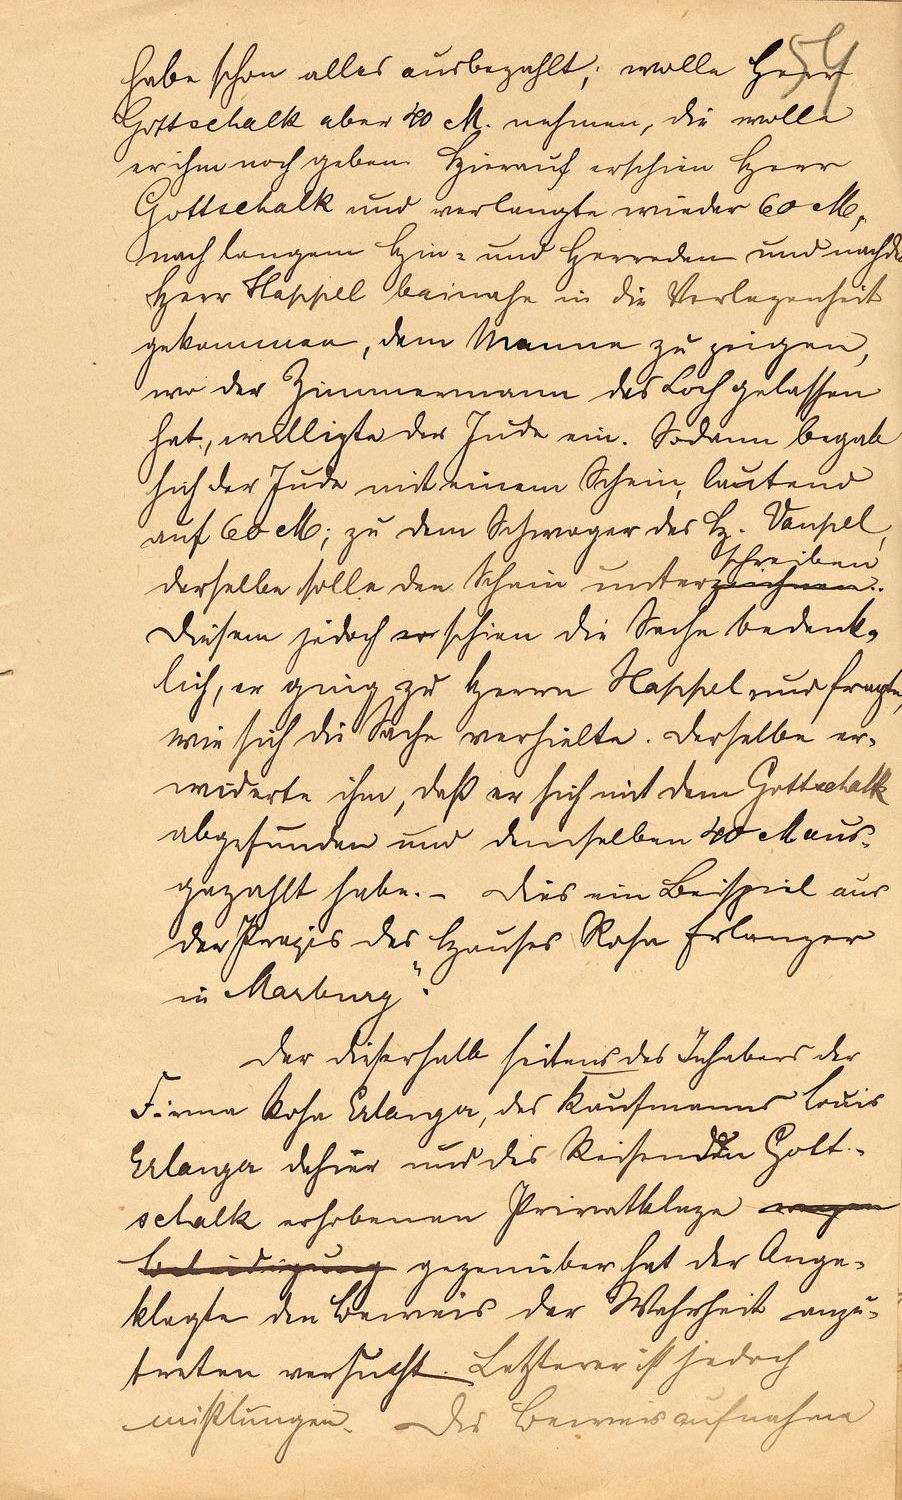 54
habe schon alles ausbezahlt; wolle Herr
Gottschalk aber 40 M. nehmen, die wolle
er ihm noch geben. Hierauf erschien Herr
Gottschalk und verlangte wieder 60 M,
nach langem Hin- und Herreden und nachdem
Herr Happel beinahe in die Verlegenheit
gekommen, dem Manne zu zeigen,
wo der Zimmermann das Loch gelassen
hat, willigte der Jude ein. Sodann begab
sich der Jude mit einem Schein, lautend
auf 60 M; zu dem Schwager des H.
schreiben
derselbe solle den Schein unterzeichnen.
Diesem jedoch erschien die Sache bedenk-
lich, er ging zu Herrn Happel und fragte,
wie sich die Sache verhielte. Derselbe er-
widerte ihm, daß er sich mit dem Gottschalk
abgefunden und demselben 40 M aus-
gezahlt habe. – Dies ein Beispiel aus
der Praxis des Hauses Rosa Erlanger
in Marburg".
Der dieserhalb seitens des Inhabers der
Firma Rosa Erlanger, des Kaufmanns Louis
Erlanger dahier und des Reisenden Gott-
schalk erhobenen Privatklage wegen
Beleidigung gegenüber hat der Ange-
klagte den Beweis der Wahrheit anzu-
treten versucht. Letzterer ist jedoch
mißlungen. Die Beweisaufnahme